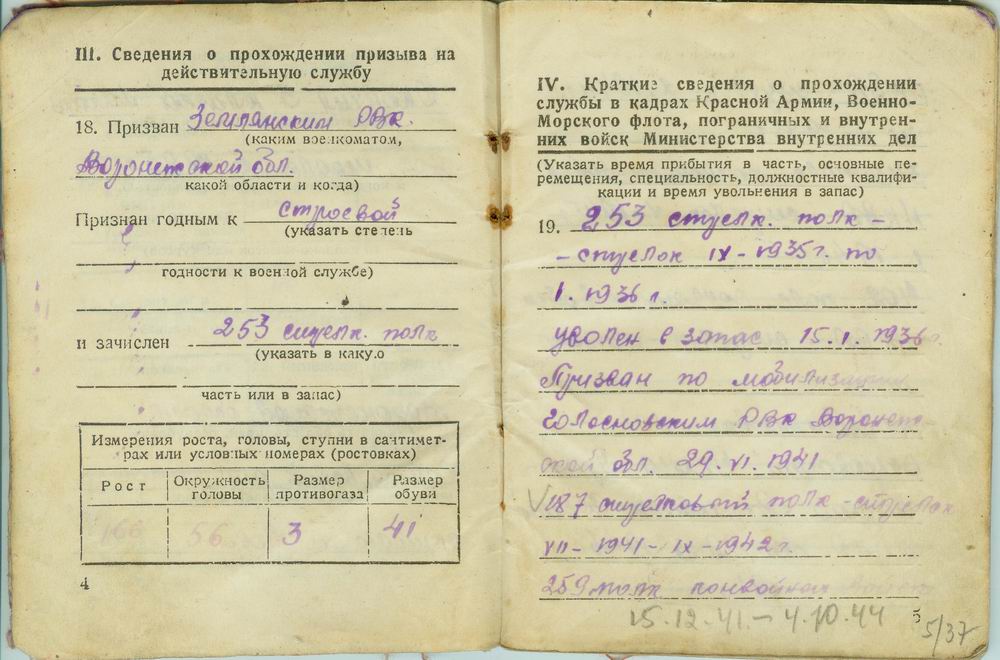 III. Сведения о прохождении призыва на
действительную службу
18. Призван Землянским РВк.
(каким военкоматом,
Воронежской обл.
какой области и когда)
Признан годным к строевой
(указать степень
годности к военной службе)
и зачислен 253 стрелк. полк
(указать в какую
часть или в запас)
Измерения роста, головы, ступни в сантимет-
рах или условных номерах (ростовках)
Рост Окружность головы Размер противогаза Размер обуви
166 56 3 41
4
IV. Краткие сведения о прохождении
службы в кадрах Красной Армии, Военно-
Морского флота, пограничных и внутрен-
них войск Министерства внутренних дел
(Указать время прибытия в часть, основные пе-
ремещения, специальность, должностные квалифи-
кации и время увольнения в запас)
19. 253 стрелк. полк -
- стрелок IX - 1935 г. по
I. 1936 г.
уволен в запас 15. I. 1936 г.
Призван по мобилизации
Голосновским РВк Воронеж-
ской обл. 29. VI. 1941
V 187 стрелковый полк - стрелок
VII - 1941 - IX - 1942 г.
259 полк конвойных войск
15.12.41. - 4.10.44
5
5/37